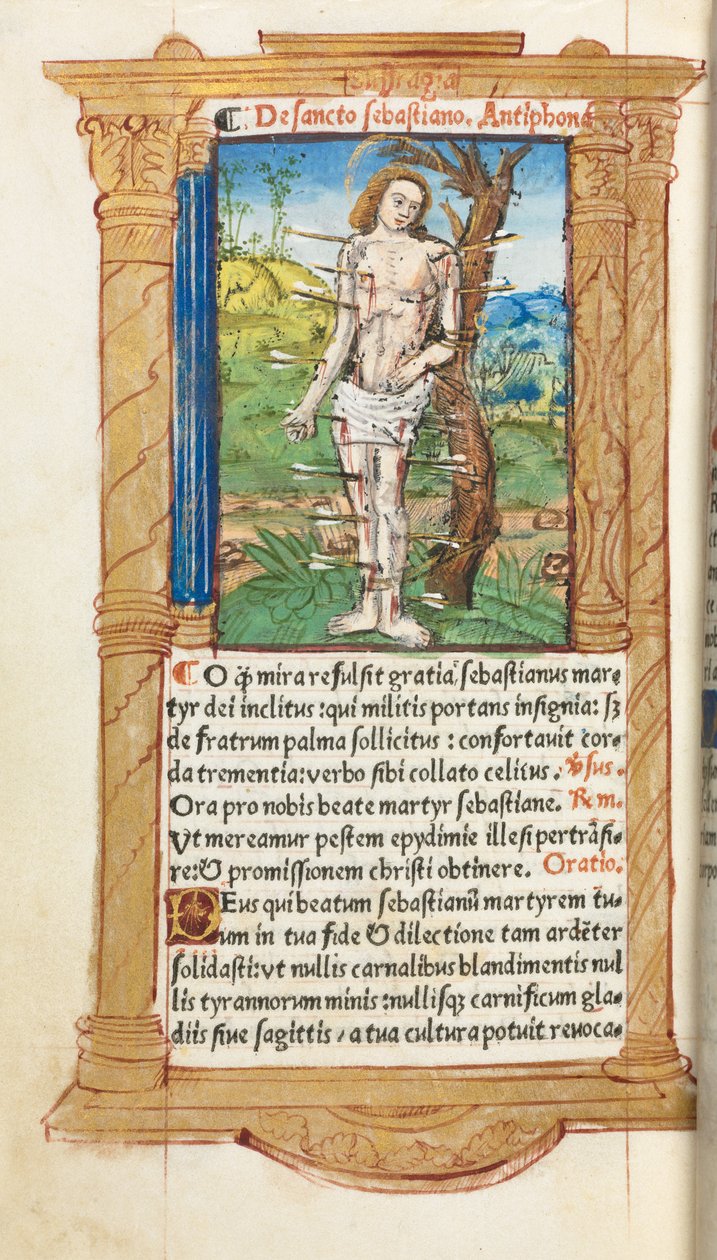 Suffragia
De sancto sebastiano. Antiphona
O q̃ mira refulsit gratia, sebastianus mar-
tyr dei inclitus : qui militis portans insignia: sȝ
de fratrum palma sollicitus : confortauit cor-
da trementia: verbo sibi collato celitus. v̄sus.
Ora pro nobis beate martyr sebastiane. ℞m.
Vt mereamur pestem epydimie illesi pertrãsi-
re: & promissionem christi obtinere. Oratio.
DEus qui beatum sebastianũ martyrem tu-
um in tua fide & dilectione tam ardẽter
solidasti: vt nullis carnalibus blandimentis nul
lis tyrannorum minis : nullisqȝ carnificum gla-
diis siue sagittis / a tua cultura potuit reuoca-